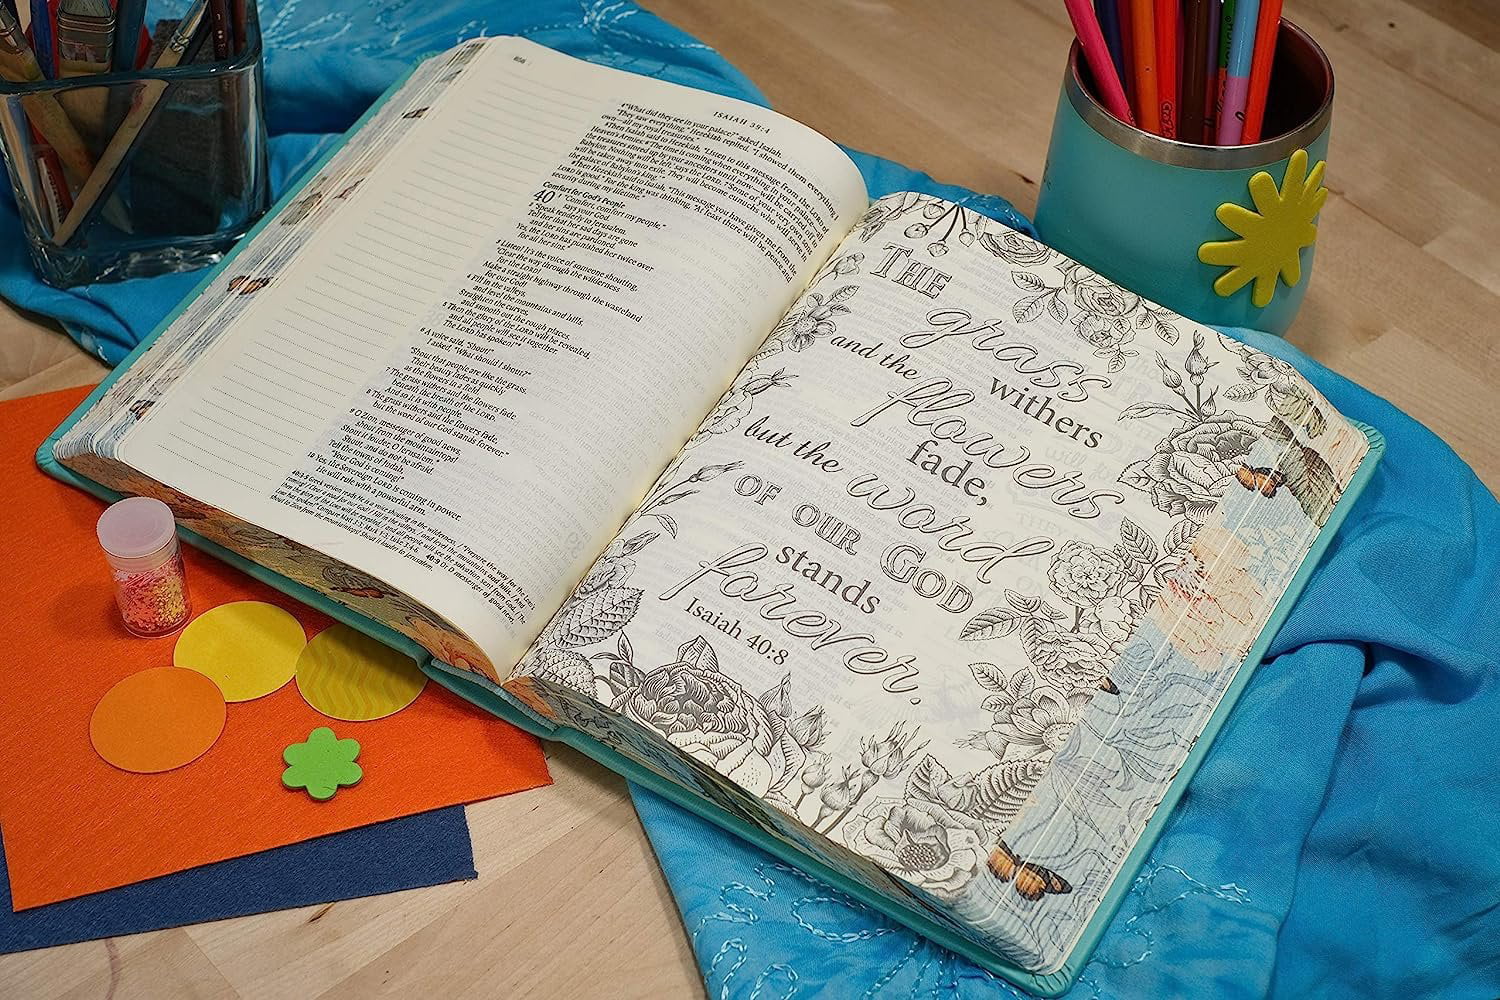 ISAIAH 39:4
4 "What did they see in your palace?" asked Isaiah.
"They saw everything," Hezekiah replied. "I showed them everything I
own—all my royal treasuries."
5 Then Isaiah said to Hezekiah, "Listen to this message from the LORD of
Heaven's Armies: 6 'The time is coming when everything in your palace—all
the treasures stored up by your ancestors until now—will be carried off to
Babylon. Nothing will be left,' says the LORD. 7 'Some of your very own sons
will be taken away into exile. They will become eunuchs who will serve in
the palace of Babylon's king.'"
8 Then Hezekiah said to Isaiah, "This message you have given me from the
LORD is good." For the king was thinking, "At least there will be peace and
security during my lifetime."
Comfort for God's People
40 1 "Comfort, comfort my people,"
says your God.
2 "Speak tenderly to Jerusalem.
Tell her that her sad days are gone
and her sins are pardoned.
Yes, the LORD has punished her twice over
for all her sins."
3 Listen! It's the voice of someone shouting,
"Clear the way through the wilderness
for the LORD!
Make a straight highway through the wasteland
for our God!
4 Fill in the valleys,
and level the mountains and hills.
Straighten the curves,
and smooth out the rough places.
5 Then the glory of the LORD will be revealed,
and all people will see it together.
The LORD has spoken!"*
6 A voice said, "Shout!"
I asked, "What should I shout?"
"Shout that people are like the grass.
Their beauty fades as quickly
as the flowers in a field.
7 The grass withers and the flowers fade
beneath the breath of the LORD.
And so it is with people.
8 The grass withers and the flowers fade,
but the word of our God stands forever."
9 O Zion, messenger of good news,
shout from the mountaintops!
Shout it louder, O Jerusalem.*
Shout, and do not be afraid.
Tell the towns of Judah,
"Your God is coming!"
10 Yes, the Sovereign LORD is coming in power.
He will rule with a powerful arm.
THE
grass
withers
and the
flowers
fade,
but the
word
OF OUR GOD
stands
forever.
Isaiah 40:8